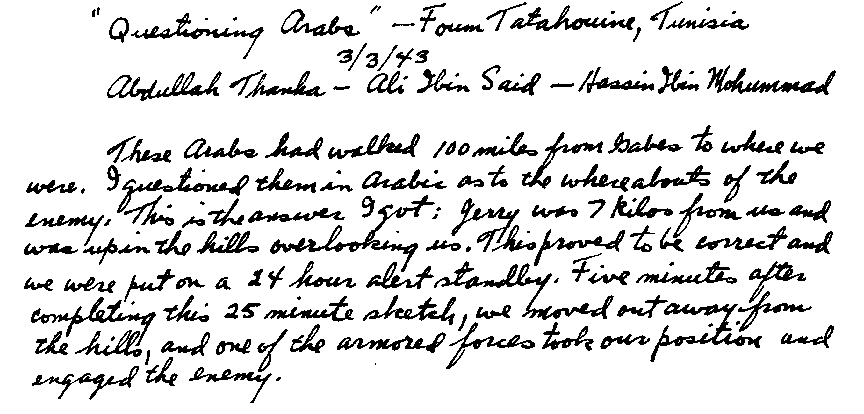 "Questioning Arabs" — Foum Tatahouine, Tunisia
3/3/43
Abdullah Thanka — Ali Ibin Said — Hassin Ibin Mohummad
These Arabs had walked 100 miles from Gabes to where we
were. I questioned them in Arabic as to the whereabouts of the
enemy. This is the answer I got: Jerry was 7 kilos from us and
was up in the hills overlooking us. This proved to be correct and
we were put on a 24 hour alert standby. Five minutes after
completing this 25 minute sketch, we moved out away from
the hills, and one of the armored forces took our position and
engaged the enemy.